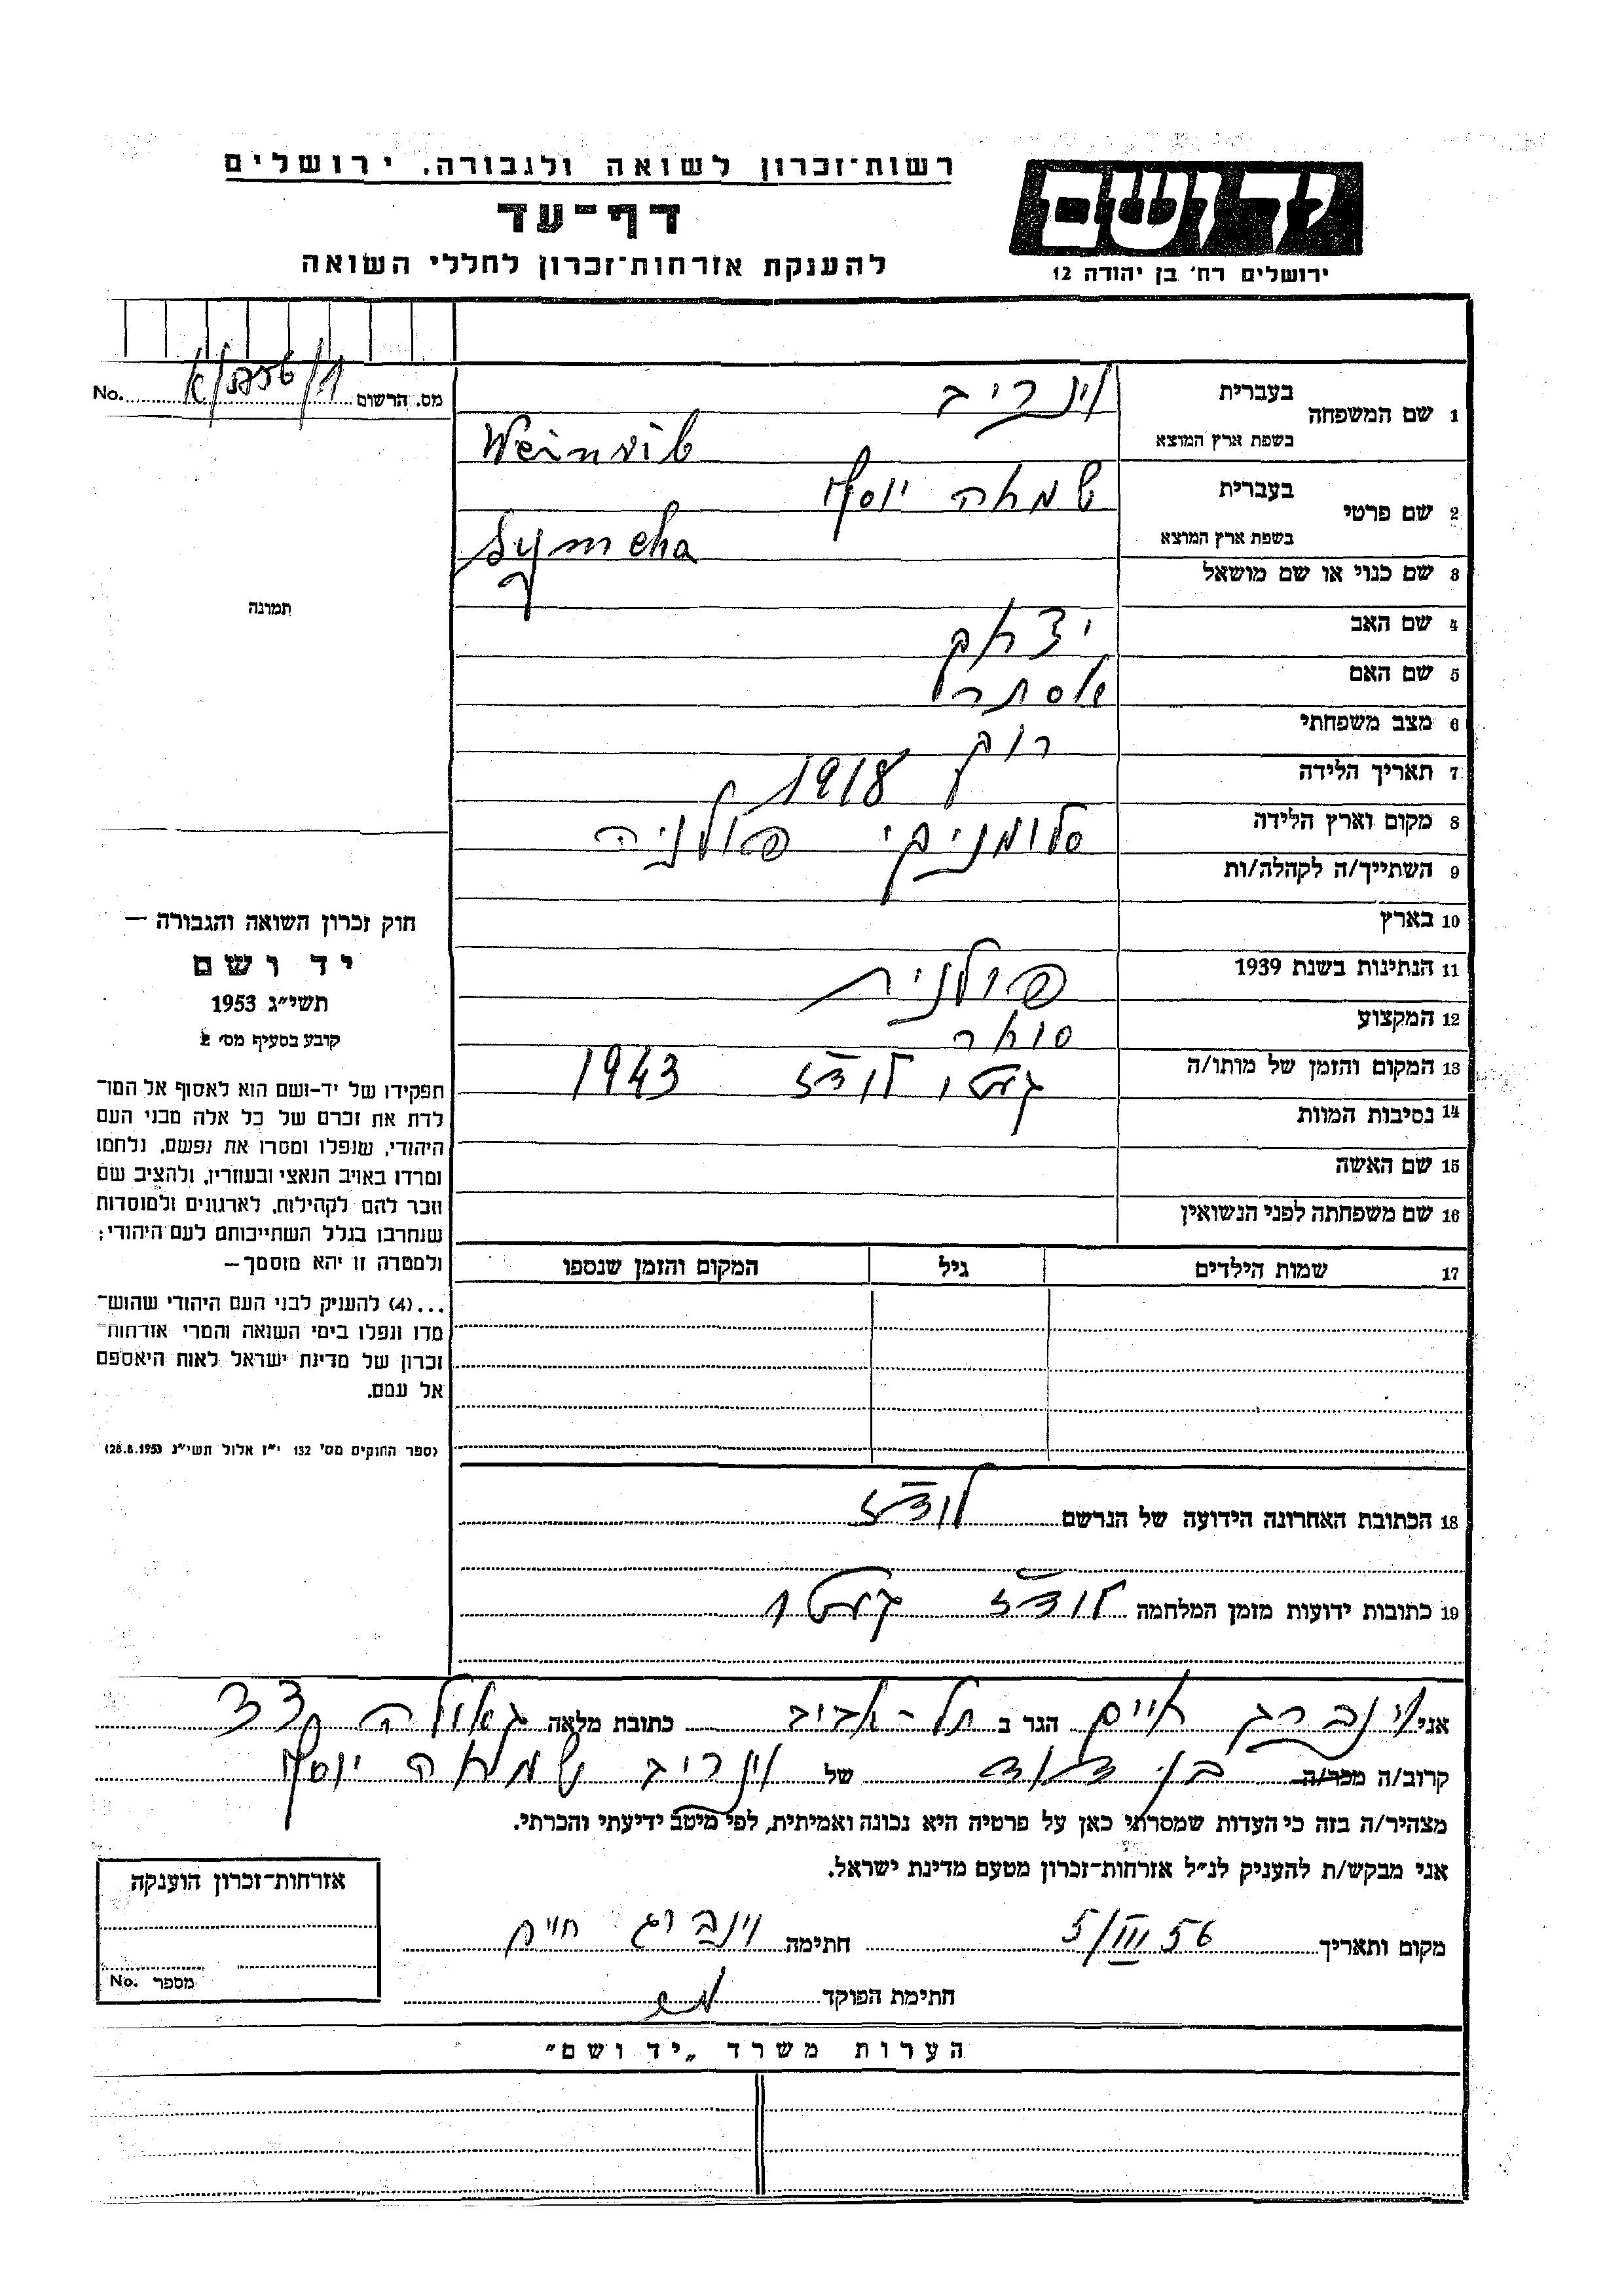 רשות-זכרון לשואה ולגבורה. ירושלים
יד ושם
דף-עד
להענקת אזרחות-זכרון לחללי השואה
ירושלים רח' בן יהודה 12
מס. הרשום No.
1 שם המשפחה
בעברית וינריב
בשפת ארץ המוצא Weinrib
2 שם פרטי
בעברית שמחה יוסף
בשפת ארץ המוצא Symcha
3 שם כנוי או שם מושאל
תמונה
4 שם האב יצחק
5 שם האם אסתר
6 מצב משפחתי רוק
7 תאריך הלידה 1918
8 מקום וארץ הלידה סלומניקי פולניה
9 השתייך/ה לקהלה/ות
10 בארץ
11 הנתינות בשנת 1939 פולנית
12 המקצוע סוחר
13 המקום והזמן של מותו/ה געטו לודז 1943
14 נסיבות המוות
15 שם האשה
16 שם משפחתה לפני הנשואין
17 שמות הילדים גיל המקום והזמן שנספו
חוק זכרון השואה והגבורה —
יד ושם
תשי"ג 1953
קובע בסעיף מס' 2
תפקידו של יד-ושם הוא לאסוף אל המו־
לדת את זכרם של כל אלה מבני העם
היהודי, שנפלו ומסרו את נפשם, נלחמו
ומרדו באויב הנאצי ובעוזריו, ולהציב שם
וזכר להם לקהילות, לארגונים ולמוסדות
שנחרבו בגלל השתייכותם לעם היהודי;
ולמטרה זו יהא מוסמך —
...(4) להעניק לבני העם היהודי שהוש־
מדו ונפלו בימי השואה והמרי אזרחות־
זכרון של מדינת ישראל לאות היאספם
אל עמם.
(ספר החוקים מס' 132 י"ז אלול תשי"ג 28.8.1953)
18 הכתובת האחרונה הידועה של הנרשם לודז
19 כתובות ידועות מזמן המלחמה לודז געטו
אני וינברג חיים הגר ב תל-אביב כתובת מלאה גאולה 33
קרוב/ה מכר/ה בן דוד של וינריב שמחה יוסף
מצהיר/ה בזה כי העדות שמסרתי כאן על פרטיה היא נכונה ואמיתית, לפי מיטב ידיעתי והכרתי.
אני מבקש/ת להעניק לנ"ל אזרחות-זכרון מטעם מדינת ישראל.
מקום ותאריך 5/III 56 חתימה וינברג חיים
חתימת הפוקד
אזרחות-זכרון הוענקה
מספר No.
הערות משרד „יד ושם"